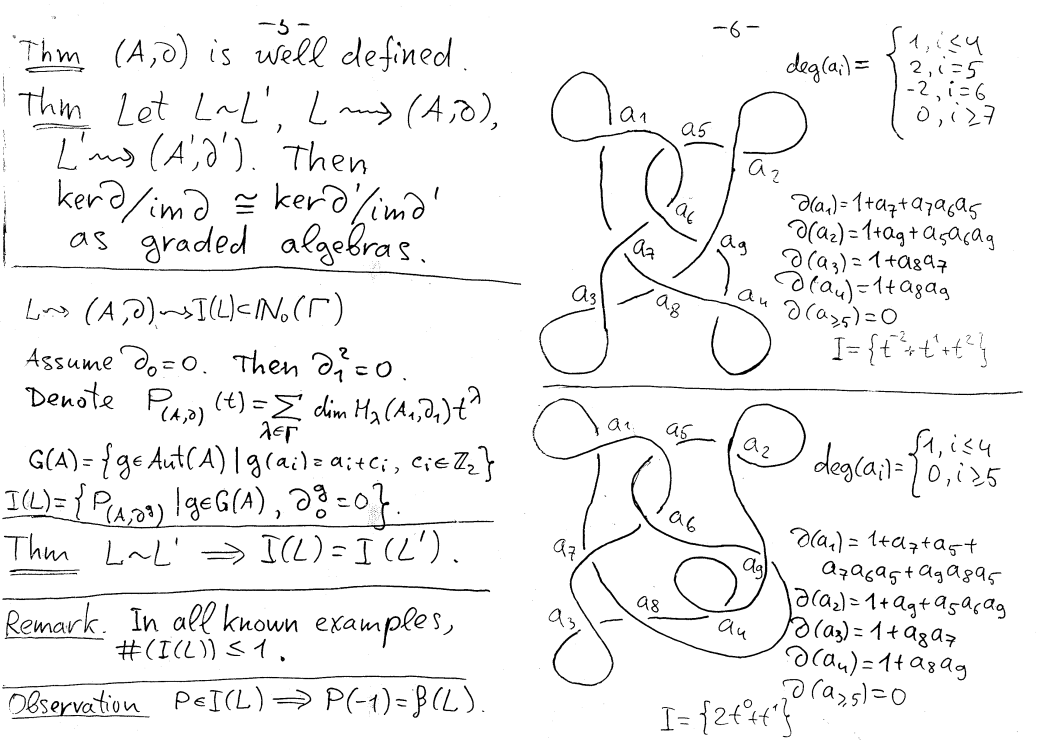 -5-
Thm (A,∂) is well defined.
Thm Let L~L', L ⟿ (A,∂),
L' ⟿ (A',∂'). Then
ker∂/im∂ ≅ ker∂'/im∂'
as graded algebras.
L ⟿ (A,∂) ⟿ I(L)⊂ℕ₀(Γ)
Assume ∂₀=0. Then ∂₁²=0.
Denote P_(A,∂)(t)=∑_{λ∈Γ} dim H_λ(A₁,∂₁)t^λ
G(A)={g∈Aut(A)|g(aᵢ)=aᵢ+cᵢ, cᵢ∈ℤ₂}
I(L)={P_(A,∂^g)|g∈G(A), ∂₀^g=0}.
Thm L~L' ⟹ I(L)=I(L').
Remark. In all known examples,
#(I(L))≤1.
Observation P∈I(L) ⟹ P(-1)=β(L).
-6-
deg(aᵢ)= { 1, i≤4
2, i=5
-2, i=6
0, i≥7
a₁
a₅
a₂
a₆
a₇
a₉
a₃
a₈
a₄
∂(a₁)=1+a₇+a₇a₆a₅
∂(a₂)=1+a₉+a₅a₆a₉
∂(a₃)=1+a₈a₇
∂(a₄)=1+a₈a₉
∂(a≥₅)=0
I={t⁻²+t¹+t²}
a₁
a₅
a₂
a₆
a₇
a₉
a₈
a₃
a₄
deg(aᵢ)= { 1, i≤4
0, i≥5
∂(a₁)=1+a₇+a₅+
a₇a₆a₅+a₉a₈a₅
∂(a₂)=1+a₉+a₅a₆a₉
∂(a₃)=1+a₈a₇
∂(a₄)=1+a₈a₉
∂(a≥₅)=0
I={2t⁰+t¹}